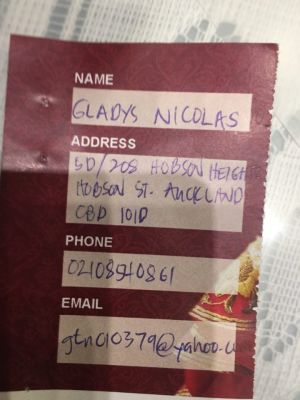 NAME
GLADYS NICOLAS
ADDRESS
5D/208 HOBSON HEIGHTS
HOBSON ST. AUCKLAND
CBD 1010
PHONE
02108540861
EMAIL
gtn010379@yahoo.com